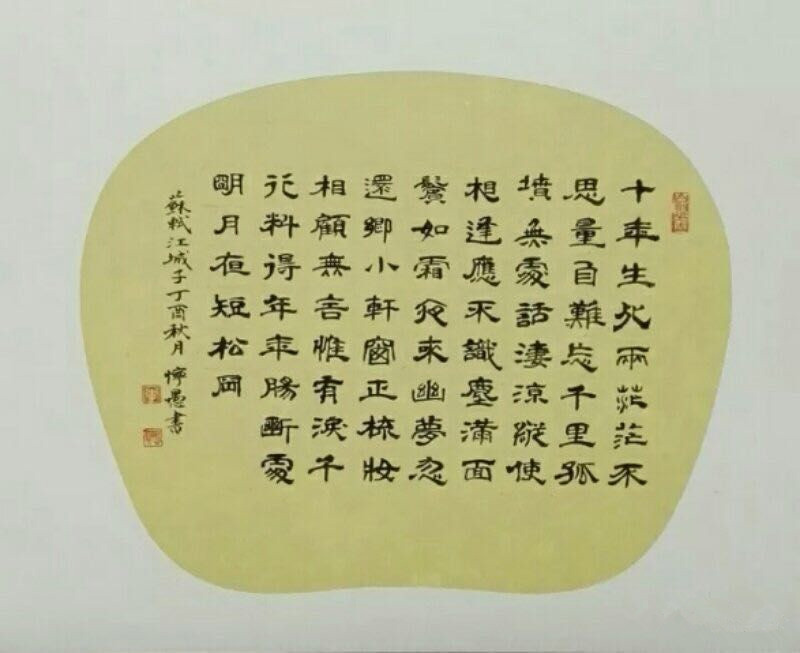 十年生死兩茫茫不
思量自難忘千里孤
墳無處話淒涼縱使
相逢應不識塵滿面
鬢如霜夜來幽夢忽
還鄉小軒窗正梳妝
相顧無言惟有淚千
行料得年年腸斷處
明月夜短松岡
蘇軾江城子丁酉秋月愚書